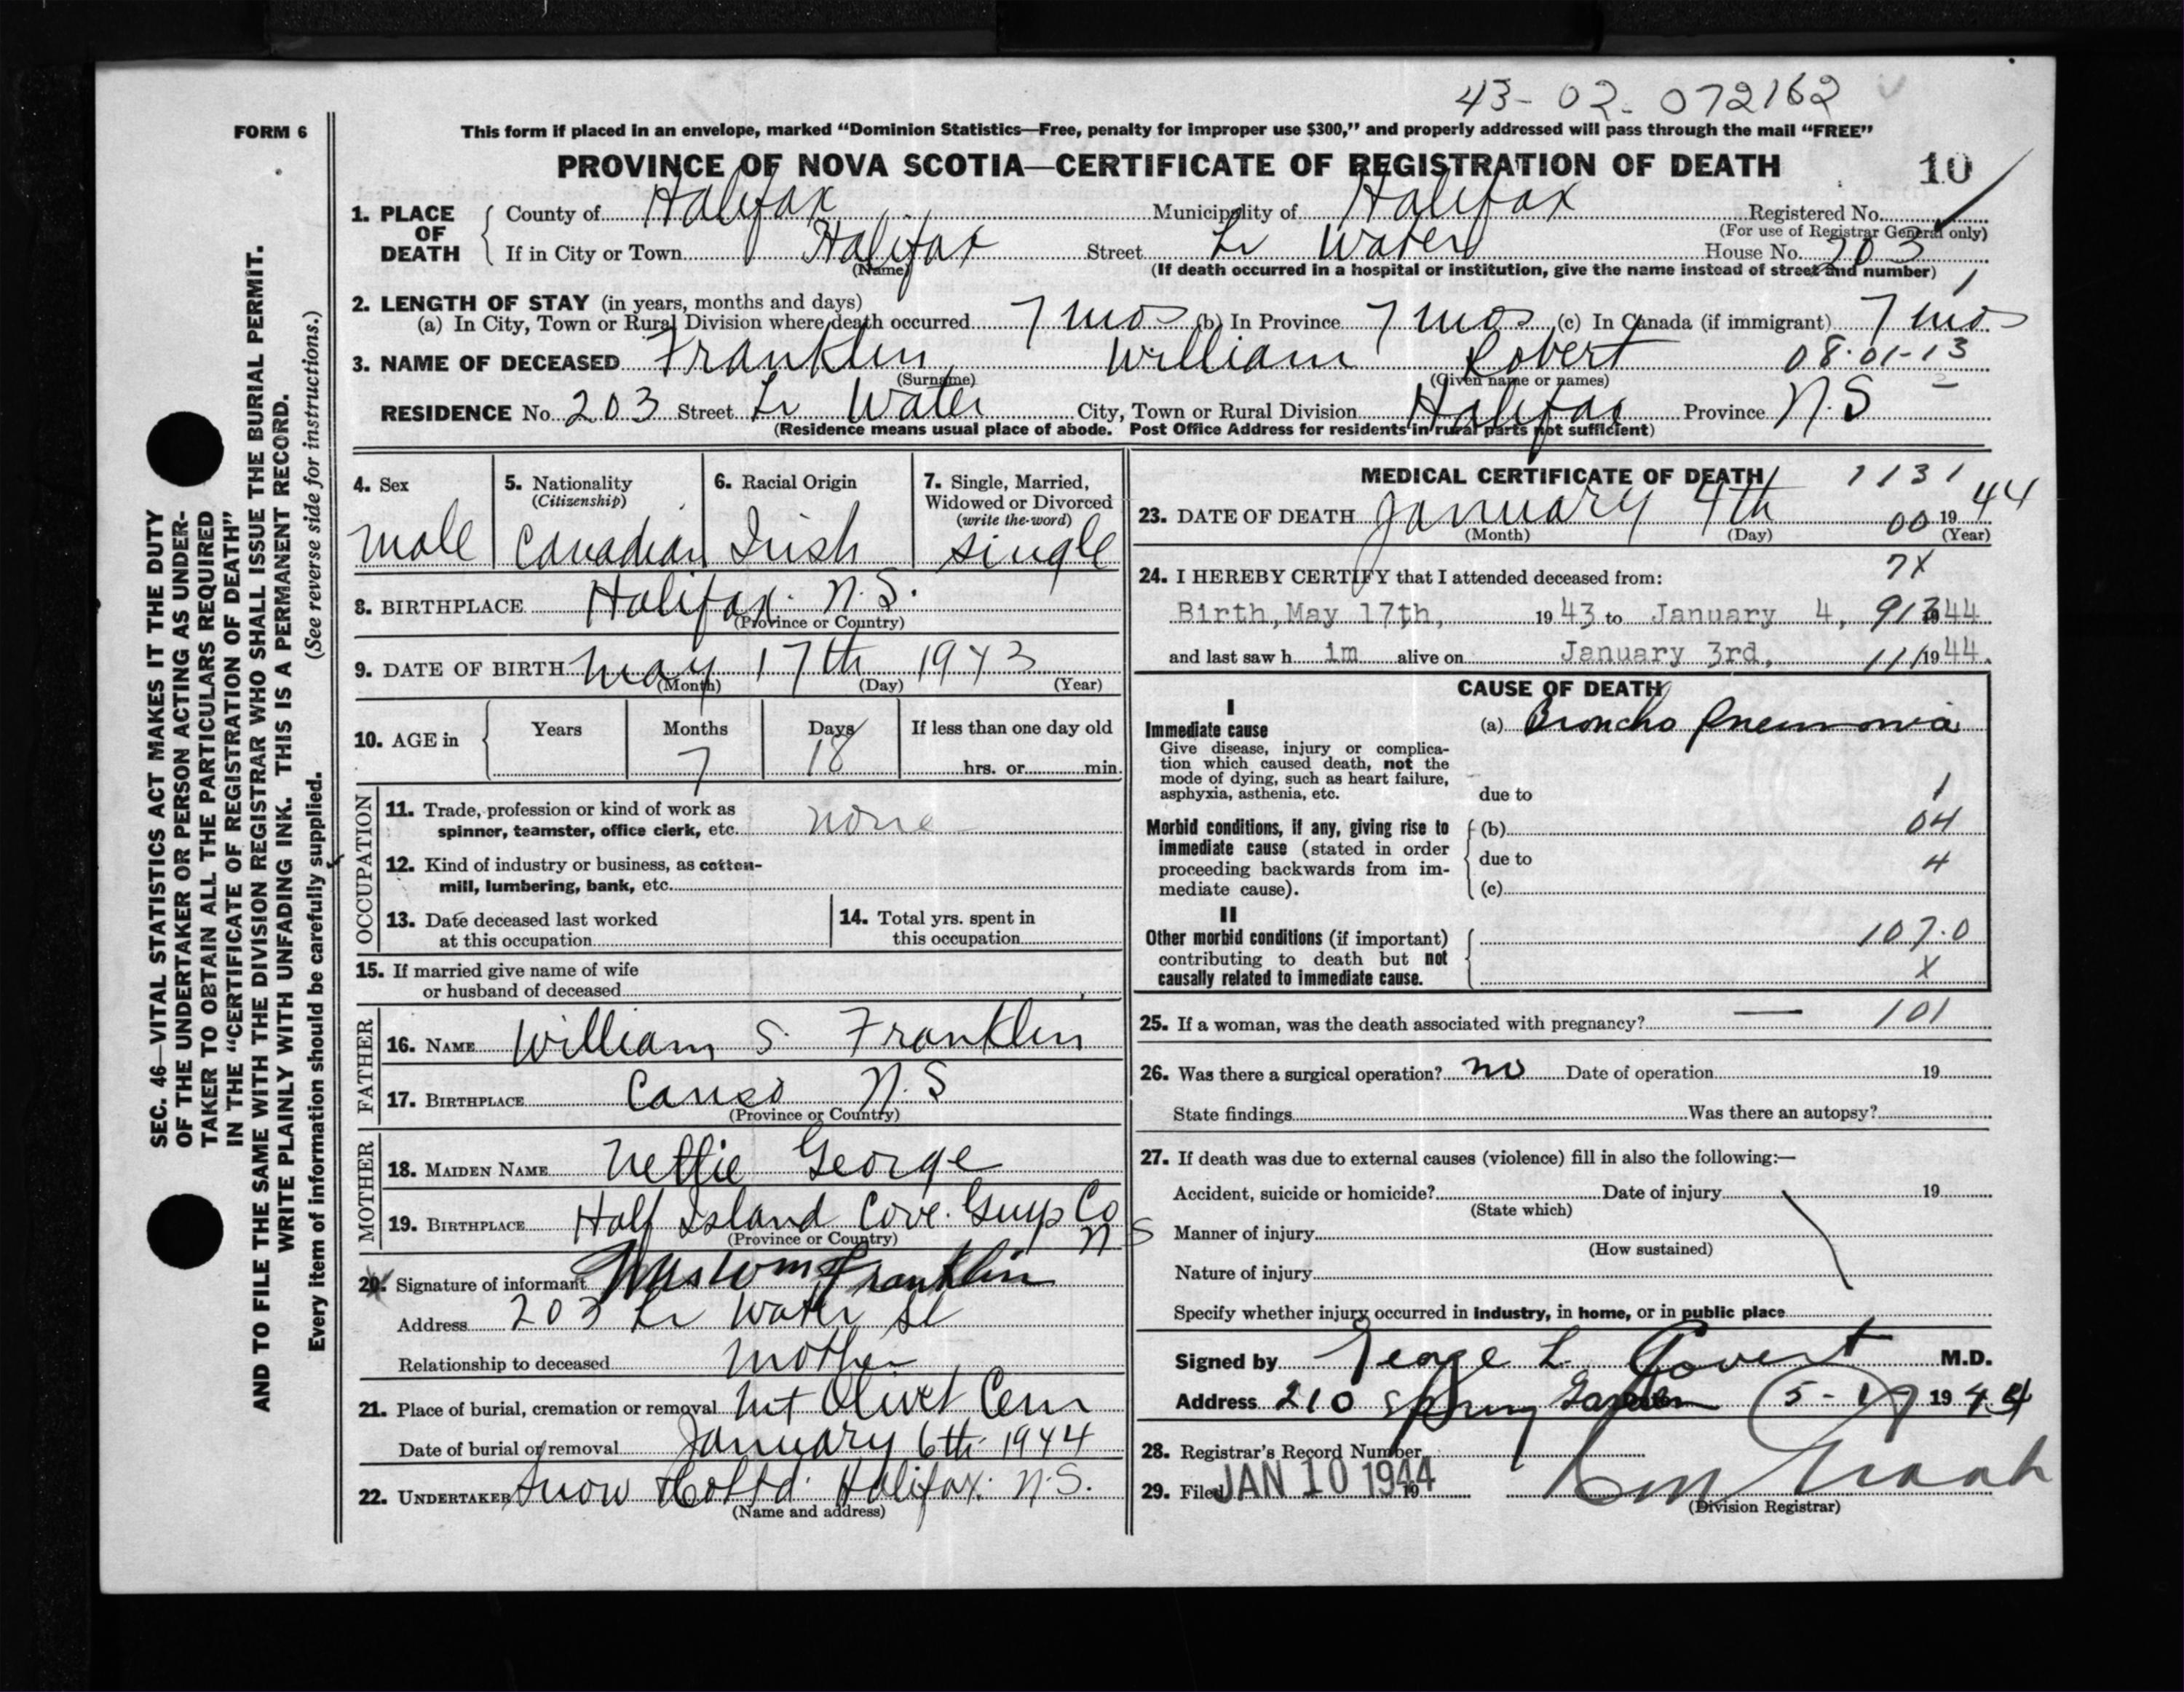 43-02-072162
FORM 6
This form if placed in an envelope, marked “Dominion Statistics—Free, penalty for improper use $300,” and properly addressed will pass through the mail “FREE”
PROVINCE OF NOVA SCOTIA—CERTIFICATE OF REGISTRATION OF DEATH 10
1. PLACE OF DEATH { County of Halifax Municipality of Halifax Registered No.
(For use of Registrar General only)
If in City or Town Halifax Street Lr Water House No. 203
(Name) (If death occurred in a hospital or institution, give the name instead of street and number) 1
2. LENGTH OF STAY (in years, months and days)
(a) In City, Town or Rural Division where death occurred 7 mos (b) In Province 7 mos (c) In Canada (if immigrant) 7 mos
3. NAME OF DECEASED Franklin William Robert 08-01-13
(Surname) (Given name or names)
RESIDENCE No. 203 Street Lr Water City, Town or Rural Division Halifax Province N.S
(Residence means usual place of abode. Post Office Address for residents in rural parts not sufficient)
4. Sex 5. Nationality (Citizenship) 6. Racial Origin 7. Single, Married, Widowed or Divorced (write the word)
male Canadian Irish single
8. BIRTHPLACE Halifax. N.S.
(Province or Country)
9. DATE OF BIRTH May 17th 1943
(Month) (Day) (Year)
10. AGE in { Years Months Days If less than one day old
7 18 hrs. or min.
OCCUPATION
11. Trade, profession or kind of work as
spinner, teamster, office clerk, etc. none
12. Kind of industry or business, as cotton-
mill, lumbering, bank, etc.
13. Date deceased last worked
at this occupation
14. Total yrs. spent in
this occupation
15. If married give name of wife
or husband of deceased
FATHER
16. NAME William S. Franklin
17. BIRTHPLACE Canso N.S
(Province or Country)
MOTHER
18. MAIDEN NAME Nettie George
19. BIRTHPLACE Half Island Cove. Guys Co
(Province or Country) N S
20. Signature of informant Franklin
Address 203 Lr Water St
Relationship to deceased mother
21. Place of burial, cremation or removal Mt Olivet Cem
Date of burial or removal January 6th 1944
22. UNDERTAKER Snow & Co Ltd. Halifax. N.S.
(Name and address)
MEDICAL CERTIFICATE OF DEATH 1131
23. DATE OF DEATH January 4th 00 19 44
(Month) (Day) (Year)
24. I HEREBY CERTIFY that I attended deceased from: 7X
Birth, May 17th, 1943 to January 4, 1944
and last saw h im alive on January 3rd, 1944.
CAUSE OF DEATH
I
Immediate cause
Give disease, injury or complica-
tion which caused death, not the
mode of dying, such as heart failure,
asphyxia, asthenia, etc.
(a) Broncho Pneumonia
due to 1
Morbid conditions, if any, giving rise to
immediate cause (stated in order
proceeding backwards from im-
mediate cause).
(b) 04
due to 4
(c)
II
Other morbid conditions (if important)
contributing to death but not
causally related to immediate cause.
107.0
X
25. If a woman, was the death associated with pregnancy? — 101
26. Was there a surgical operation? no Date of operation 19
State findings Was there an autopsy?
27. If death was due to external causes (violence) fill in also the following:—
Accident, suicide or homicide? Date of injury 19
(State which)
Manner of injury
(How sustained)
Nature of injury
Specify whether injury occurred in industry, in home, or in public place
Signed by George L. M.D.
Address 210 Spring Garden 5-1 1944
28. Registrar's Record Number
29. Filed JAN 10 1944 19
(Division Registrar)
SEC. 46—VITAL STATISTICS ACT MAKES IT THE DUTY
OF THE UNDERTAKER OR PERSON ACTING AS UNDER-
TAKER TO OBTAIN ALL THE PARTICULARS REQUIRED
IN THE “CERTIFICATE OF REGISTRATION OF DEATH”
AND TO FILE THE SAME WITH THE DIVISION REGISTRAR WHO SHALL ISSUE THE BURIAL PERMIT.
WRITE PLAINLY WITH UNFADING INK. THIS IS A PERMANENT RECORD.
Every item of information should be carefully supplied. (See reverse side for instructions.)